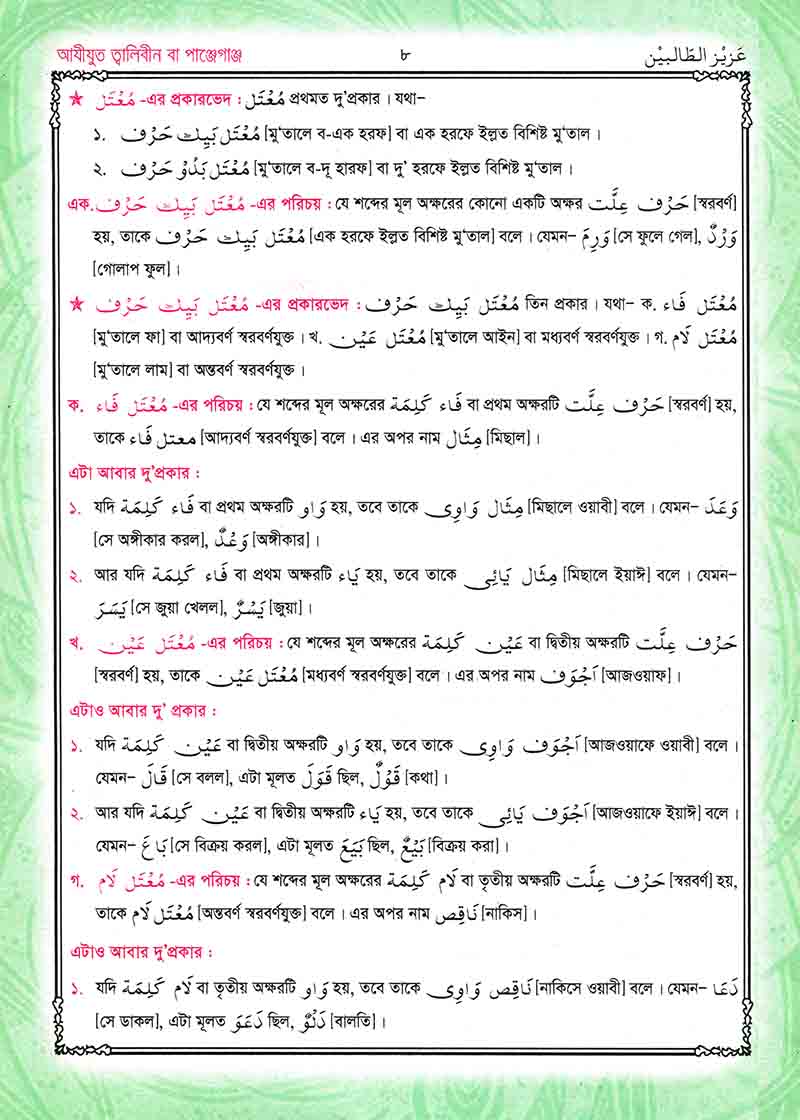 আযীযুত ত্বালিবীন বা পাঞ্জেগাঞ্জ ৮ عَزِيْزُ الطَّالِبِيْنَ
★ مُعْتَل -এর প্রকারভেদ : مُعْتَل প্রথমত দু'প্রকার। যথা–
১. مُعْتَل بَيِك حَرْف [মু'তালে ব-এক হরফ] বা এক হরফে ইল্লত বিশিষ্ট মু'তাল।
২. مُعْتَل بَدُوْ حَرْف [মু'তালে ব-দূ হারফ] বা দু' হরফে ইল্লত বিশিষ্ট মু'তাল।
এক. مُعْتَل بَيِك حَرْف -এর পরিচয় : যে শব্দের মূল অক্ষরের কোনো একটি অক্ষর حَرْف عِلَّت [স্বরবর্ণ]
হয়, তাকে مُعْتَل بَيِك حَرْف [এক হরফে ইল্লত বিশিষ্ট মু'তাল] বলে। যেমন– وَرِمَ [সে ফুলে গেল], وَرْدٌ
[গোলাপ ফুল]।
★ مُعْتَل بَيِك حَرْف -এর প্রকারভেদ : مُعْتَل بَيِك حَرْف তিন প্রকার। যথা– ক. مُعْتَل فَاء
[মু'তালে ফা] বা আদ্যবর্ণ স্বরবর্ণযুক্ত। খ. مُعْتَل عَيْن [মু'তালে আইন] বা মধ্যবর্ণ স্বরবর্ণযুক্ত। গ. مُعْتَل لَام
[মু'তালে লাম] বা অন্তবর্ণ স্বরবর্ণযুক্ত।
ক. مُعْتَل فَاء -এর পরিচয় : যে শব্দের মূল অক্ষরের فَاء كَلِمَة বা প্রথম অক্ষরটি حَرْف عِلَّت [স্বরবর্ণ] হয়,
তাকে معتل فَاء [আদ্যবর্ণ স্বরবর্ণযুক্ত] বলে। এর অপর নাম مِثَال [মিছাল]।
এটা আবার দু'প্রকার :
১. যদি فَاء كَلِمَة বা প্রথম অক্ষরটি وَاو হয়, তবে তাকে مِثَال وَاوِى [মিছালে ওয়াবী] বলে। যেমন– وَعَدَ
[সে অঙ্গীকার করল], وَعْدٌ [অঙ্গীকার]।
২. আর যদি فَاء كَلِمَة বা প্রথম অক্ষরটি يَاء হয়, তবে তাকে مِثَال يَائِى [মিছালে ইয়াঈ] বলে। যেমন–
يَسَرَ [সে জুয়া খেলল], يَسْرٌ [জুয়া]।
খ. مُعْتَل عَيْن -এর পরিচয় : যে শব্দের মূল অক্ষরের عَيْن كَلِمَة বা দ্বিতীয় অক্ষরটি حَرْف عِلَّت
[স্বরবর্ণ] হয়, তাকে مُعْتَل عَيْن [মধ্যবর্ণ স্বরবর্ণযুক্ত] বলে। এর অপর নাম اَجْوَف [আজওয়াফ]।
এটাও আবার দু' প্রকার :
১. যদি عَيْن كَلِمَة বা দ্বিতীয় অক্ষরটি وَاو হয়, তবে তাকে اَجْوَف وَاوِى [আজওয়াফে ওয়াবী] বলে।
যেমন– قَالَ [সে বলল], এটা মূলত قَوَلَ ছিল, قَوْلٌ [কথা]।
২. আর যদি عَيْن كَلِمَة বা দ্বিতীয় অক্ষরটি يَاء হয়, তবে তাকে اَجْوَف يَائِى [আজওয়াফে ইয়াঈ] বলে।
যেমন– بَاعَ [সে বিক্রয় করল], এটা মূলত بَيَعَ ছিল, بَيْعٌ [বিক্রয় করা]।
গ. مُعْتَل لَام -এর পরিচয় : যে শব্দের মূল অক্ষরের لَام كَلِمَة বা তৃতীয় অক্ষরটি حَرْف عِلَّت [স্বরবর্ণ] হয়,
তাকে مُعْتَل لَام [অন্তবর্ণ স্বরবর্ণযুক্ত] বলে। এর অপর নাম نَاقِص [নাকিস]।
এটাও আবার দু'প্রকার :
১. যদি لَام كَلِمَة বা তৃতীয় অক্ষরটি وَاو হয়, তবে তাকে نَاقِص وَاوِى [নাকিসে ওয়াবী] বলে। যেমন– دَعَا
[সে ডাকল], এটা মূলত دَعَوَ ছিল, دَلْوٌ [বালতি]।